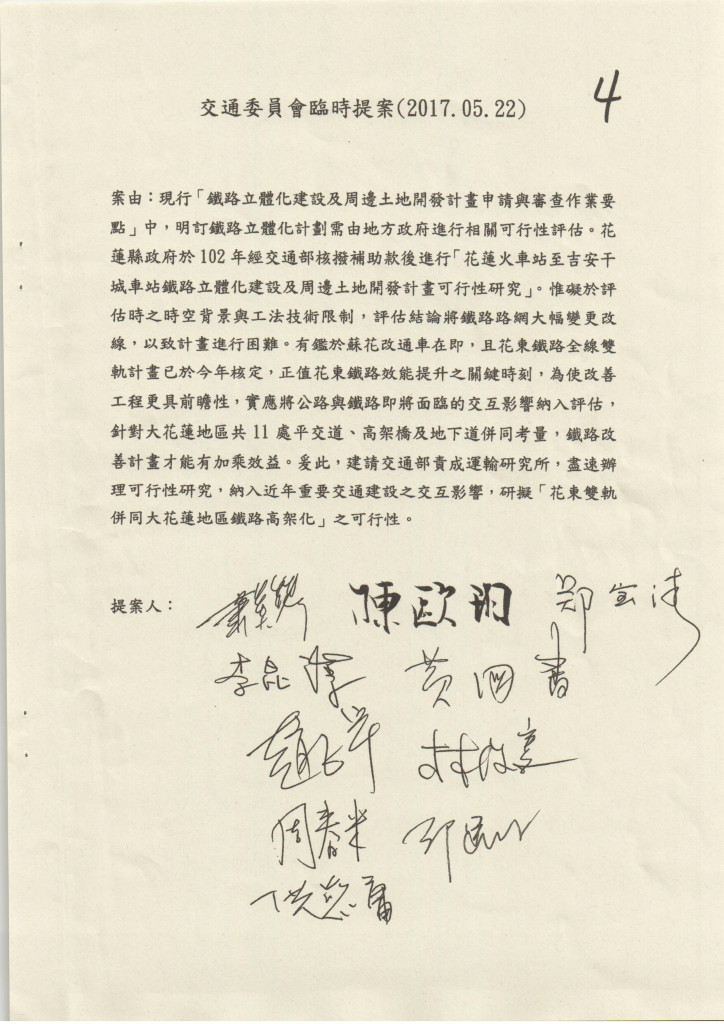 4
交通委員會臨時提案(2017.05.22)
案由：現行「鐵路立體化建設及周邊土地開發計畫申請與審查作業要
點」中，明訂鐵路立體化計劃需由地方政府進行相關可行性評估。花
蓮縣政府於102年經交通部核撥補助款後進行「花蓮火車站至吉安干
城車站鐵路立體化建設及周邊土地開發計畫可行性研究」。惟礙於評
估時之時空背景與工法技術限制，評估結論將鐵路路網大幅變更改
線，以致計畫進行困難。有鑑於蘇花改通車在即，且花東鐵路全線雙
軌計畫已於今年核定，正值花東鐵路效能提升之關鍵時刻，為使改善
工程更具前瞻性，實應將公路與鐵路即將面臨的交互影響納入評估，
針對大花蓮地區共11處平交道、高架橋及地下道併同考量，鐵路改
善計畫才能有加乘效益。爰此，建請交通部責成運輸研究所，盡速辦
理可行性研究，納入近年重要交通建設之交互影響，研擬「花東雙軌
併同大花蓮地區鐵路高架化」之可行性。
提案人： 蕭美琴 陳歐珀 鄭宝清
李昆澤 黃國書
趙正宇 林俊憲
周春米
洪慈庸